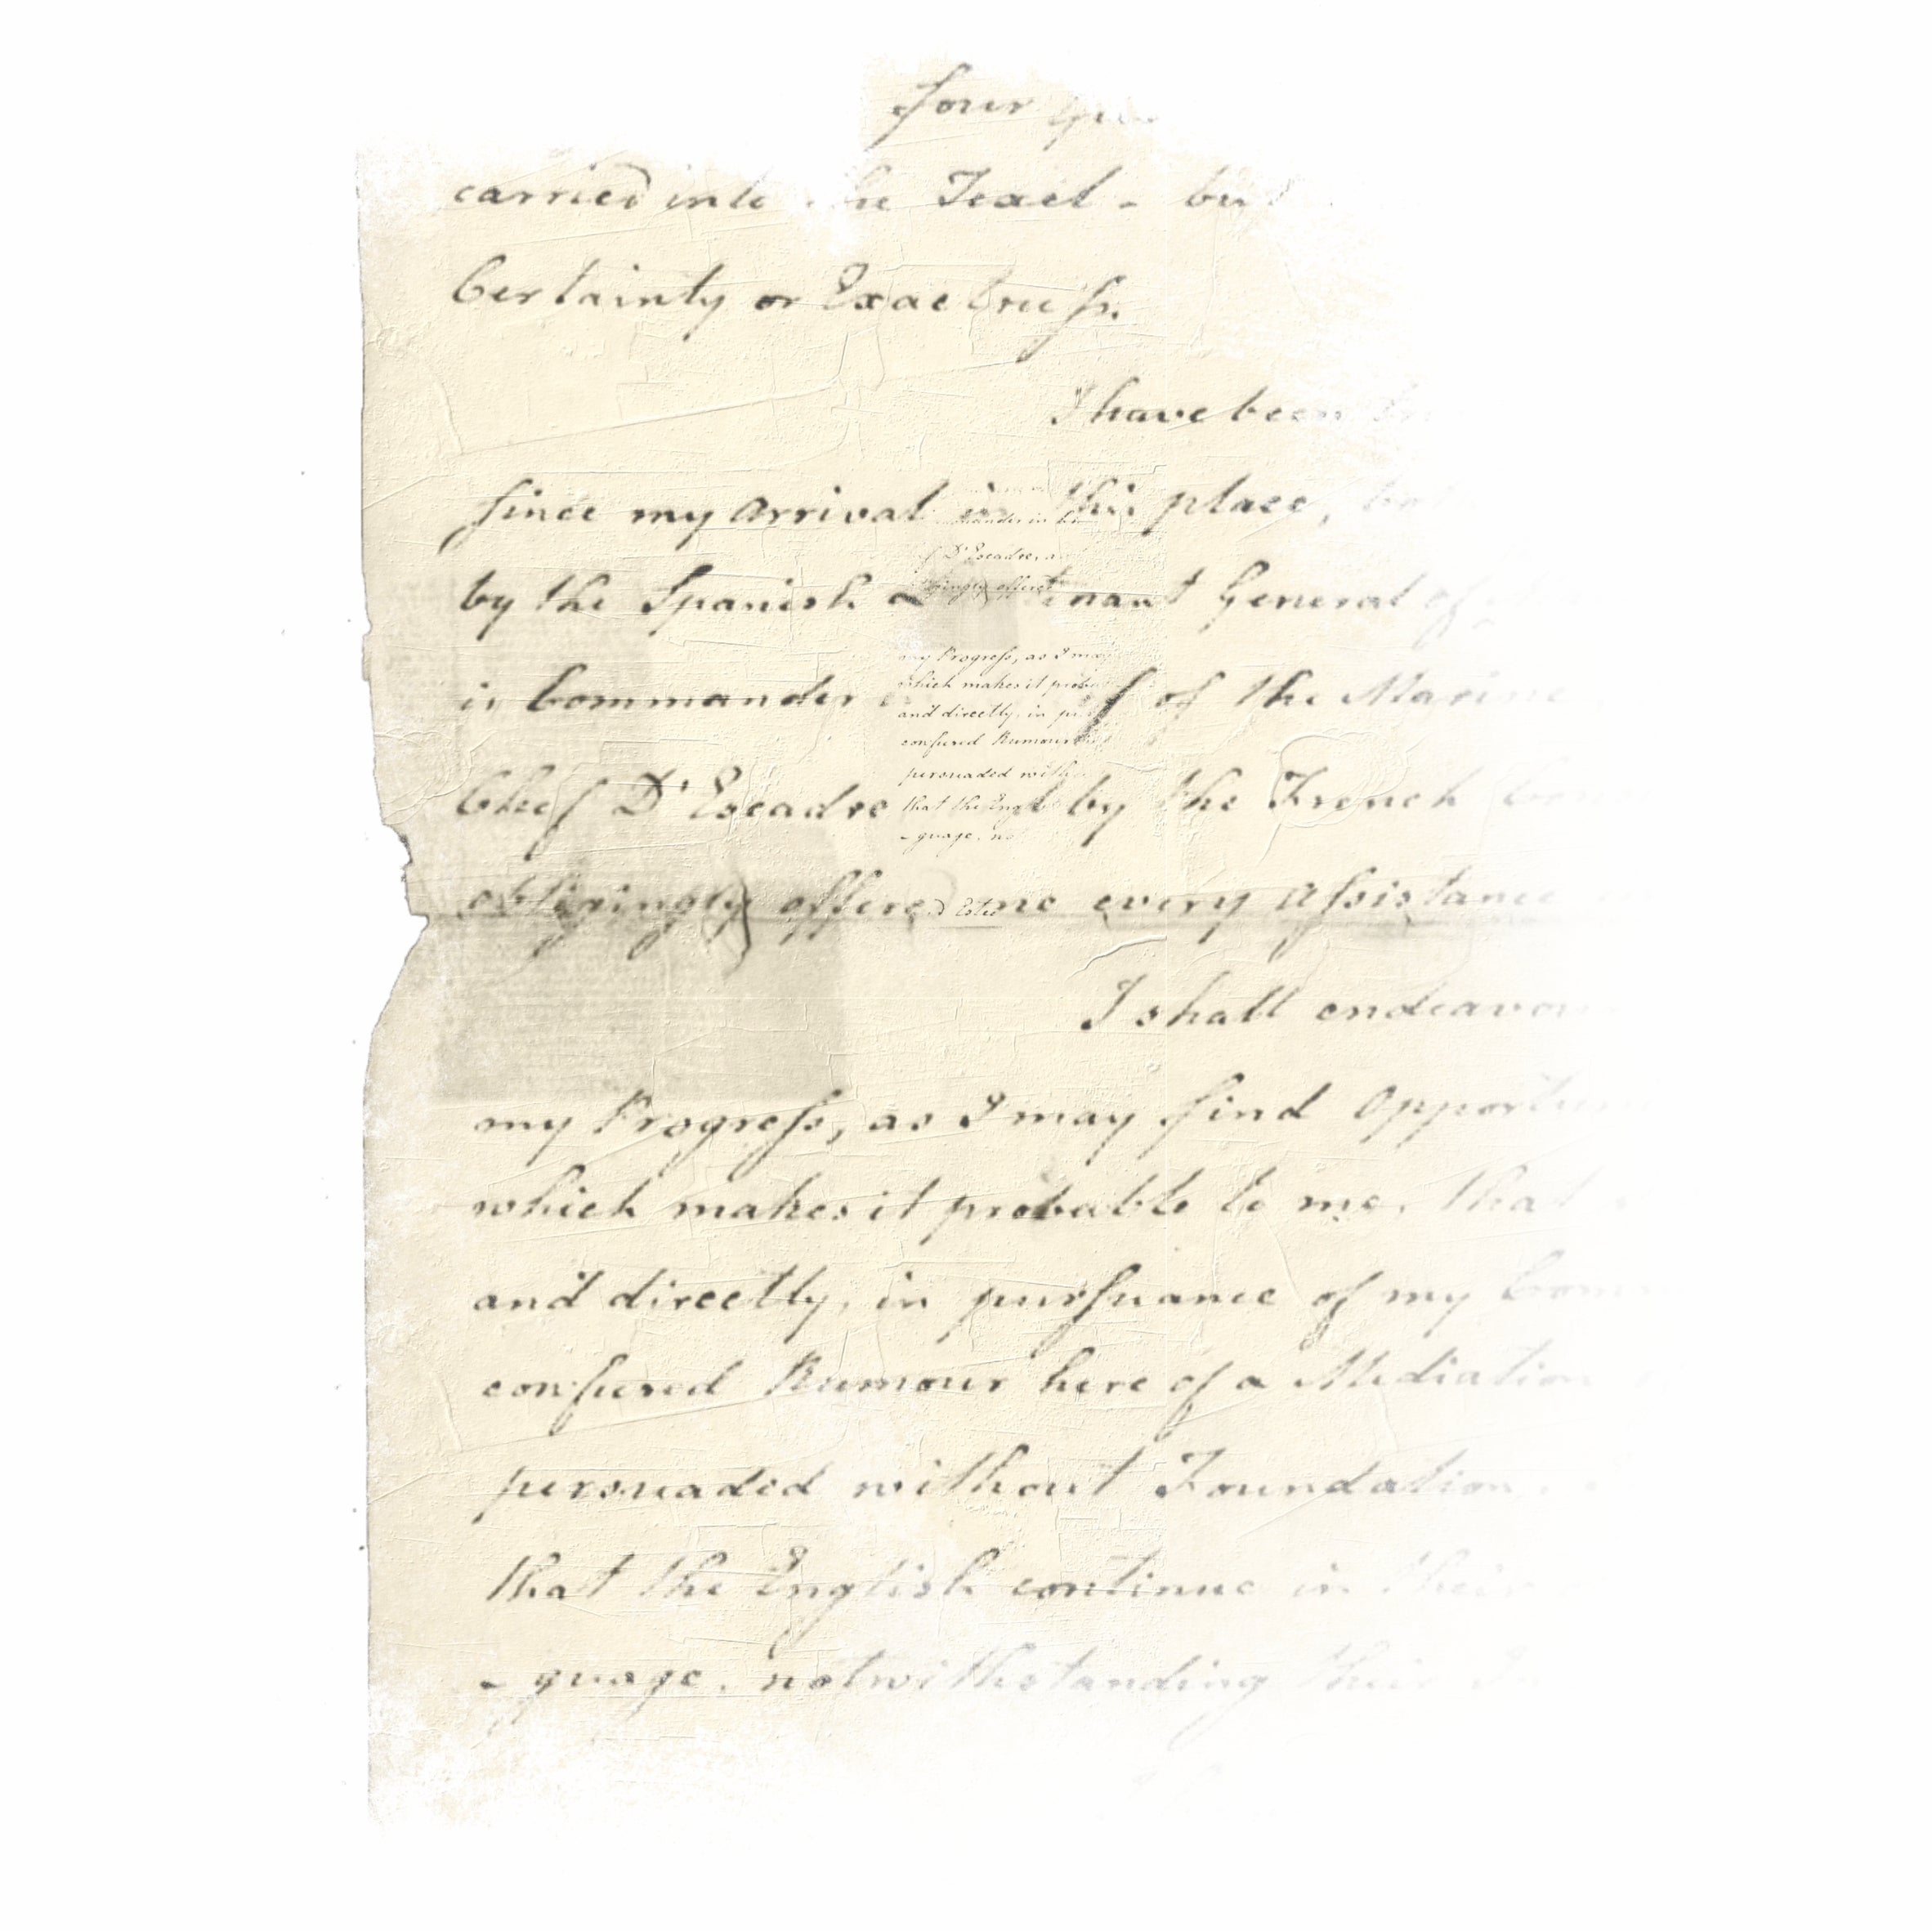 four
carried into the Texel - but
Certainty or Exactness.
I have been
since my arrival in this place,
by the Spanish General of
is Commander of the Marine
Chef D'Escadre by the French
obligingly offered me every Assistance
I shall endeavour
my Progress, as I may find
which makes it probable to me, that
and directly, in pursuance of my
confused Rumour here of a Mediation
persuaded without Foundation
that the English continue in their
-guage, notwithstanding their
D'Escadre, a
offered
my Progress, as I may
which makes it
and directly, in
confused Rumour
persuaded with
that the Engl
-guage, not